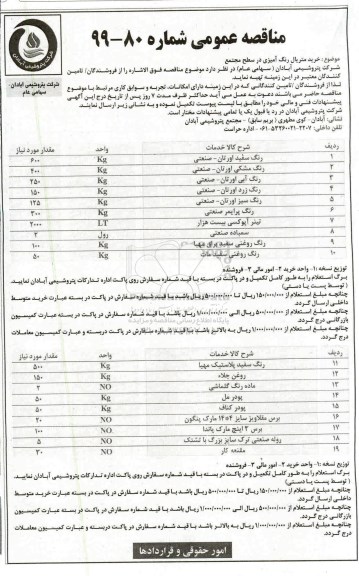 مناقصه عمومی شماره ۸۰-۹۹
شرکت پتروشیمی آبادان
سهامی عام
موضوع: خرید متریال رنگ آمیزی در سطح مجتمع
شرکت پتروشیمی آبادان (سهامی عام) در نظر دارد موضوع مناقصه فوق الاشاره را از فروشندگان/ تامین کنندگان معتبر در این زمینه تهیه نماید.
لذا از فروشندگان /تامین کنندگانی که در این زمینه دارای امکانات، تجربه و سوابق کاری مرتبط با موضوع مناقصه حاضر می باشند دعوت به عمل می آید حداکثر ظرف مدت ۷ روز پس از تاریخ درج این آگهی پیشنهادات فنی و مالی خود را مطابق با لیست پیوست تکمیل نموده و به نشانی زیر ارسال نمایند.
شرکت پتروشیمی آبادان در رد یا قبول یک یا تمامی پیشنهادات مختار است.
نشانی: آبادان - کوی مطهری (بریم سابق) - مجتمع پتروشیمی آبادان
تلفن داخلی: ۲۲۰۷-۰۶۱۵۳۲۶۰۰۲۱ اداره حراست
ردیف شرح کالا خدمات واحد مقدار مورد نیاز
۱ رنگ سفید اورتان- صنعتی Kg ۶۰۰
۲ رنگ مشکی اورتان- صنعتی Kg ۴۰۰
۳ رنگ آبی اورتان- صنعتی Kg ۲۵۰
۴ رنگ زرد اورتان- صنعتی Kg ۱۵۰
۵ رنگ سبز اورتان- صنعتی Kg ۱۲۵
۶ رنگ پرایمر صنعتی Kg ۳۰۰
۷ تینر اپوکسی بیست هزار LT ۴۰۰۰
۸ سمباده صنعتی رول ۳
۹ رنگ روغنی سفید براق مهیا Kg ۱۰۰
۱۰ رنگ روغنی سفید مات Kg ۵۰
توزیع نسخه :۱- واحد خرید ۲- امور مالی ۳- فروشنده
برگ استعلام را به طور کامل تکمیل و در پاکت در بسته با قید شماره سفارش روی پاکت اداره تدارکات پتروشیمی آبادان نمایید. ( توسط پست یا دستی)
چنانچه مبلغ استعلام از ۱۵۰/۰۰۰/۰۰۰ ریال تا ۵۰۰/۰۰۰/۰۰۰ ریال باشد با قید شماره سفارش در پاکت در بسته عبارت خرید متوسط داخلی ارسال گردد.
چنانچه مبلغ استعلام از ۵۰۰/۰۰۰/۰۰۰ ریال الی ۱/۰۰۰/۰۰۰/۰۰۰ ریال باشد با قید شماره سفارش در پاکت در بسته عبارت کمیسیون بازرگانی درج گردد.
چنانچه مبلغ استعلام از ۱/۰۰۰/۰۰۰/۰۰۰ ریال به بالاتر باشد با قید شماره سفارش در پاکت دربسته و عبارت کمیسیون معاملات درج گردد.
ردیف شرح کالا خدمات واحد مقدار مورد نیاز
۱۱ رنگ سفید پلاستیک مهیا Kg ۵۰۰
۱۲ روغن جلاء Kg ۱۵۰
۱۳ ماده رنگ گلماشی NO ۲
۱۴ پودر مل Kg ۵۰
۱۵ پودر کناف Kg ۵۰
۱۶ برس مقلاویز سایز ۱۴*۴ مارک پنگون NO ۲۰
۱۷ برس ۳ اینچ مارک پاندا NO ۱۰۰
۱۸ روله صنعتی ترک سایز بزرگ با تشتک NO ۵
۱۹ مقنعه کار NO ۳۰
توزیع نسخه :۱- واحد خرید ۲- امور مالی ۳- فروشنده
برگ استعلام را به طور کامل تکمیل و در پاکت در بسته با قید شماره سفارش روی پاکت اداره تدارکات پتروشیمی آبادان نمایید. ( توسط پست یا دستی)
چنانچه مبلغ استعلام از ۱۵۰/۰۰۰/۰۰۰ ریال تا ۵۰۰/۰۰۰/۰۰۰ ریال باشد با قید شماره سفارش در پاکت در بسته عبارت خرید متوسط داخلی ارسال گردد.
چنانچه مبلغ استعلام از ۵۰۰/۰۰۰/۰۰۰ ریال الی ۱/۰۰۰/۰۰۰/۰۰۰ ریال باشد با قید شماره سفارش در پاکت در بسته عبارت کمیسیون بازرگانی درج گردد.
چنانچه مبلغ استعلام از ۱/۰۰۰/۰۰۰/۰۰۰ ریال به بالاتر باشد با قید شماره سفارش در پاکت دربسته و عبارت کمیسیون معاملات درج گردد.
امور حقوقی و قراردادها